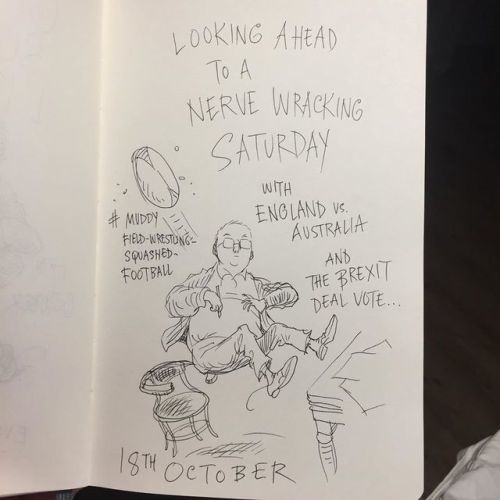 LOOKING AHEAD
TO A
NERVE WRACKING
SATURDAY
WITH
ENGLAND VS.
AUSTRALIA
AND
THE BREXIT
DEAL VOTE...
# MUDDY
FIELD-WRESTLING-
SQUASHED-
FOOTBALL
18TH OCTOBER